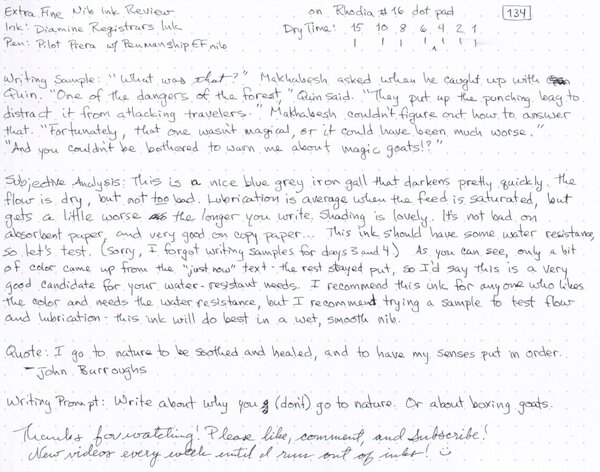 Extra Fine Nib Ink Review on Rhodia #16 dot pad 134
Ink: Diamine Registrars Ink Dry Time: 15 10 8 6 4 2 1
Pen: Pilot Prera w/ Penmanship EF nib
Writing Sample: "What was that?" Makhabesh asked when he caught up with
Quin. "One of the dangers of the forest," Quin said. "They put up the punching bag to
distract it from attacking travelers." Makhabesh couldn't figure out how to answer
that. "Fortunately, that one wasn't magical, or it could have been much worse."
"And you couldn't be bothered to warn me about magic goats!?"
Subjective Analysis: This is a nice blue grey iron gall that darkens pretty quickly. The
flow is dry, but not too bad. Lubrication is average when the feed is saturated, but
gets a little worse the longer you write. Shading is lovely. It's not bad on
absorbent paper, and very good on copy paper... This ink should have some water resistance,
so let's test. (Sorry, I forgot writing samples for days 3 and 4.) As you can see, only a bit
of color came up from the "just now" text - the rest stayed put, so I'd say this is a very
good candidate for your water-resistant needs. I recommend this ink for anyone who likes
the color and needs the water resistance, but I recommend trying a sample to test flow
and lubrication - this ink will do best in a wet, smooth nib.
Quote: I go to nature to be soothed and healed, and to have my senses put in order.
- John Burroughs
Writing Prompt: Write about why you (don't) go to nature. Or about boxing goats.
Thanks for watching! Please like, comment, and subscribe!
New videos every week until I run out of inks! ☺